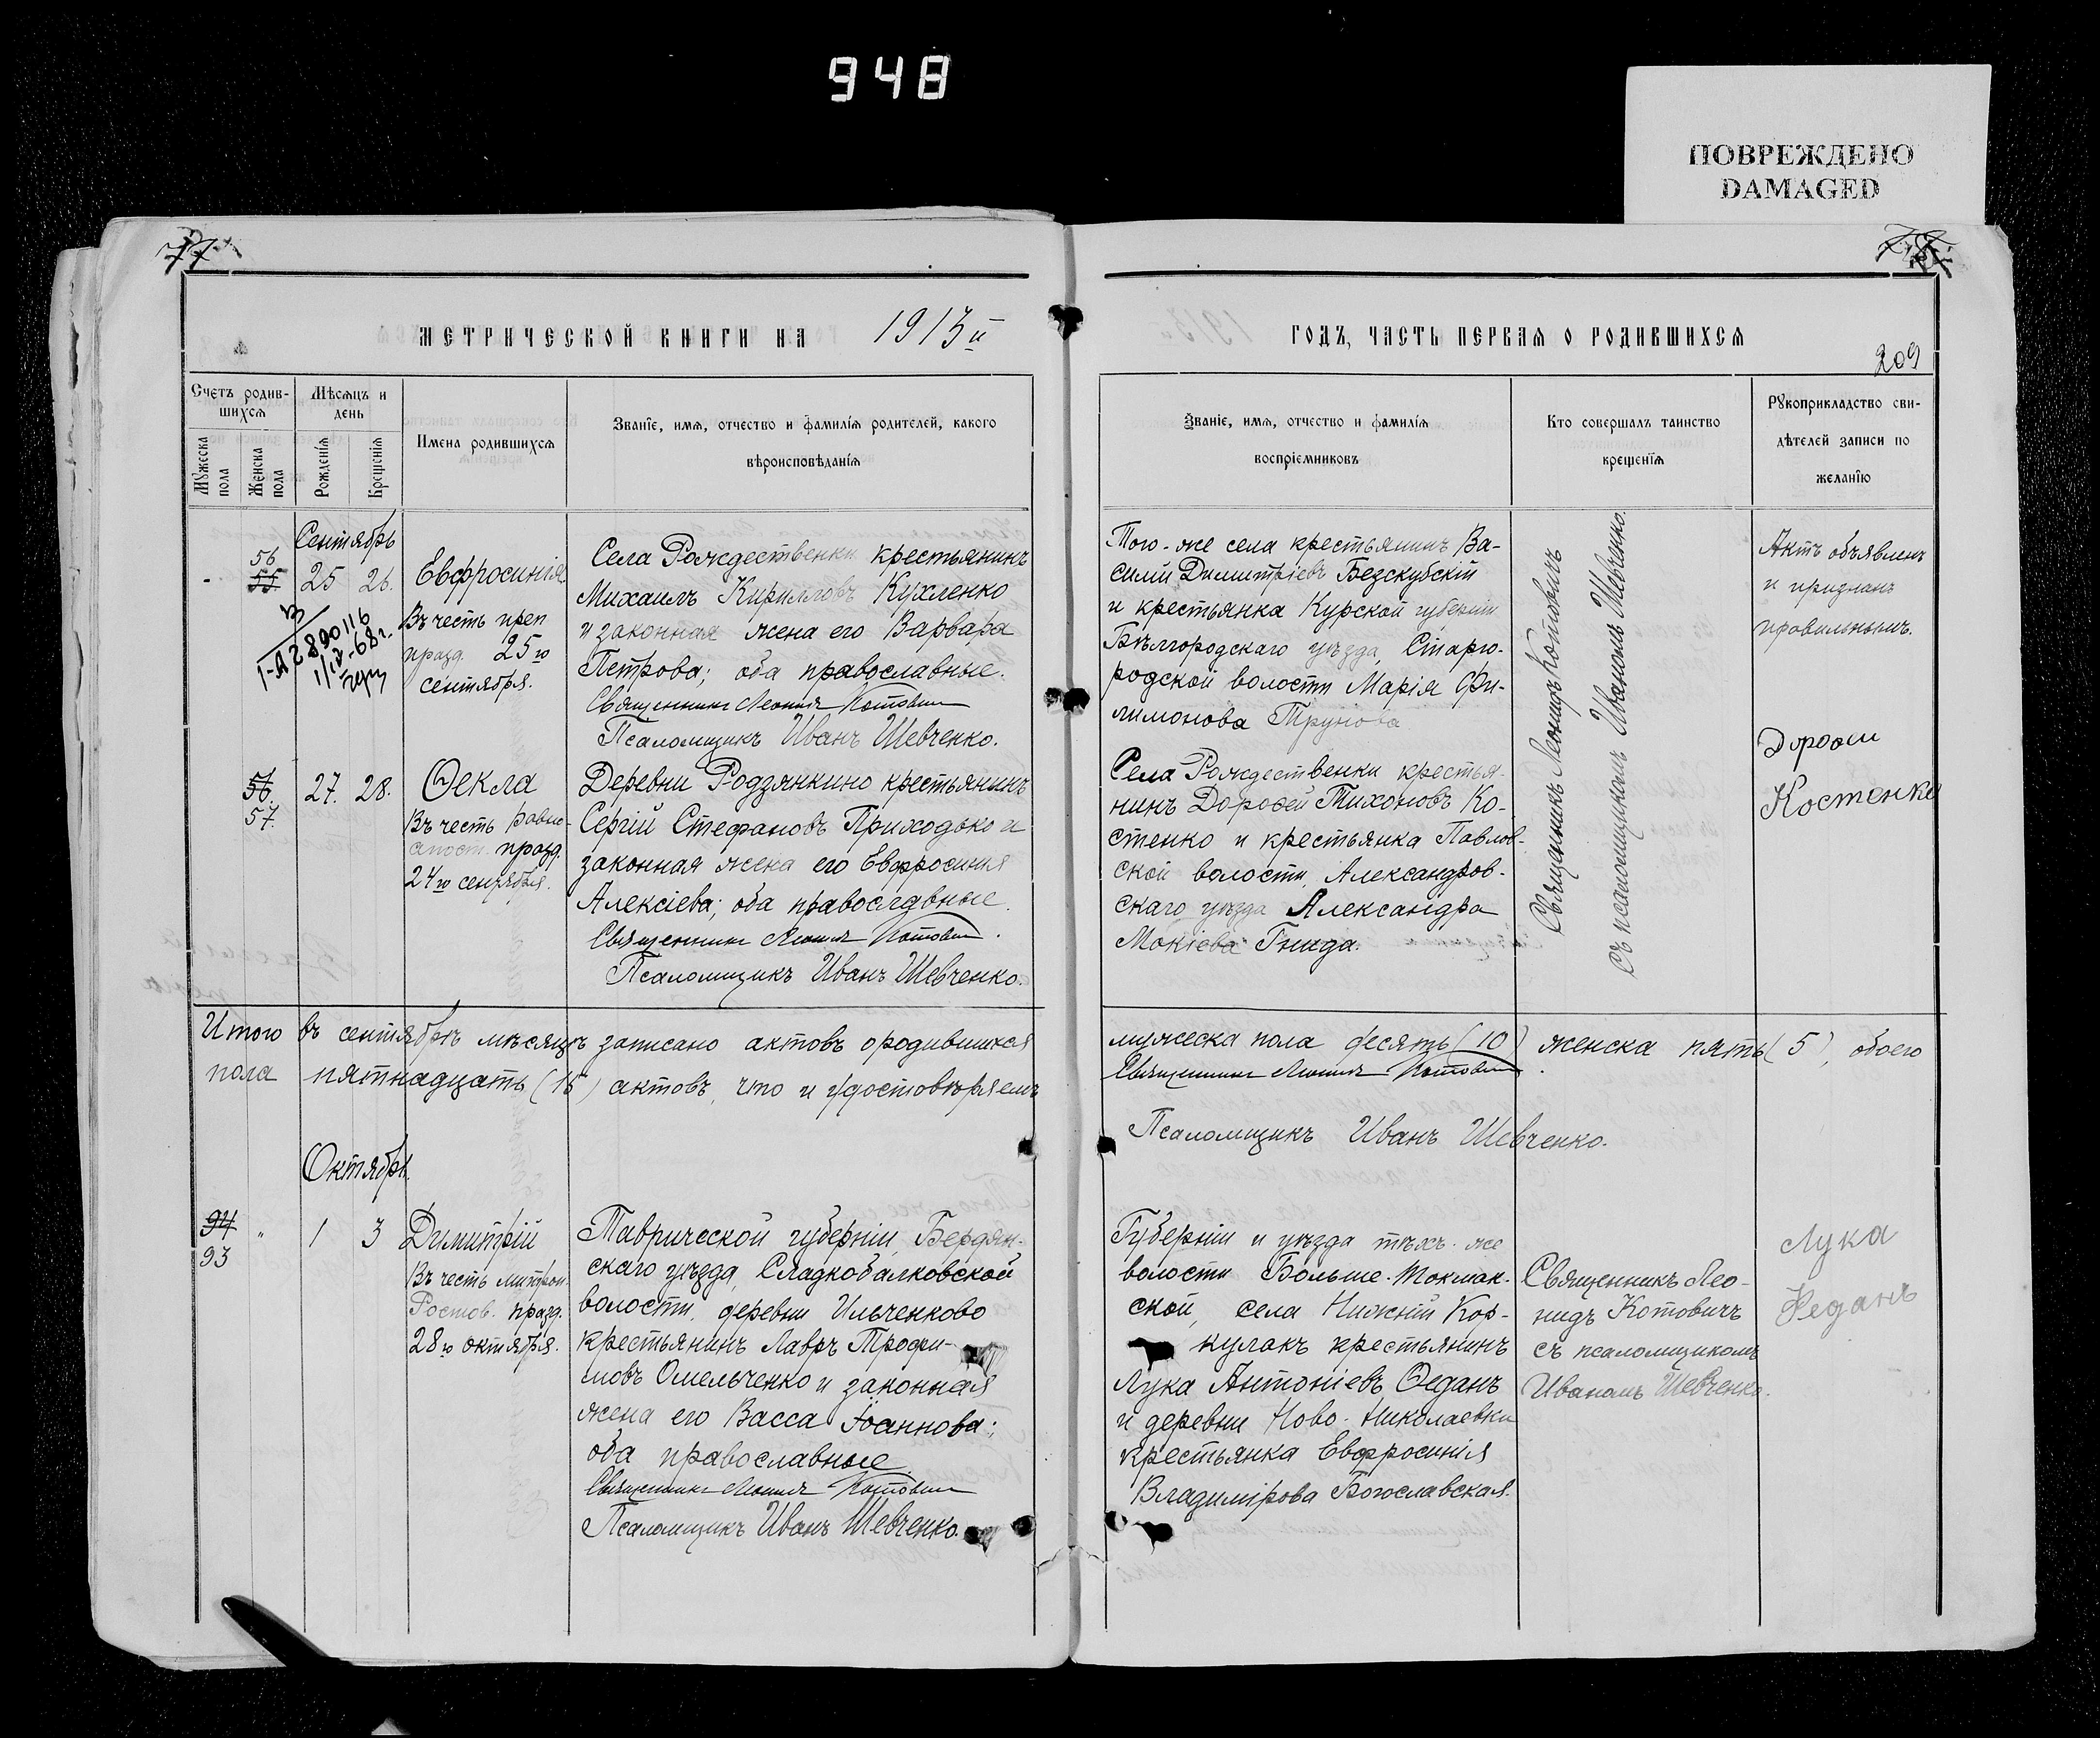 948
ПОВРЕЖДЕНО
DAMAGED
77
МЕТРИЧЕСКОЙ КНИГИ НА 1913й
ГОДЪ, ЧАСТЬ ПЕРВАЯ О РОДИВШИХСЯ
209
Счетъ родив-
шихся
Мѣсяцъ и
день
Мужеска
пола
Женска
пола
Рожденія
Крещенія
Имена родившихся
Званіе, имя, отчество и фамилія родителей, какого
вѣроисповѣданія
Званіе, имя, отчество и фамилія
воспріемниковъ
Кто совершалъ таинство
крещенія
Рукоприкладство сви-
дѣтелей записи по
желанію
Сентябрь
56
55
25 26.
Евфросинія
Въ честь преп
празд. 25го
сентября.
Села Рождественки крестьянинъ
Михаилъ Кирилловъ Кухленко
и законная жена его Варвара
Петрова; оба православные.
Священникъ Леонидъ Котовичъ
Псаломщикъ Иванъ Шевченко.
Того-же села крестьянинъ Ва-
силій Димитріевъ Безскубскій
и крестьянка Курской губерніи
Бѣлгородскаго уѣзда, Старго-
родской волости Марія Фи-
лимонова Трунова
Священникъ Леонидъ Котовичъ
съ псаломщикомъ Иваномъ Шевченко.
Актъ объявленъ
и признанъ
правильнымъ.
56.
57.
27. 28.
Ѳекла
Въ честь равно-
апост. празд.
24го сентября.
Деревни Родзянкино крестьянинъ
Сергій Стефановъ Приходько и
законная жена его Евфросинія
Алексіева; оба православные.
Священникъ Леонидъ Котовичъ.
Псаломщикъ Иванъ Шевченко.
Села Рождественки крестья-
нинъ Дороѳей Тихоновъ Ко-
стенко и крестьянка Павлов-
ской волости, Александров-
скаго уѣзда Александра
Мокіева Гнида.
Дорофи
Костенко
Итого въ сентябрѣ мѣсяцѣ записано актовъ о родившихся мужеска пола десять (10) женска пять (5), обоего
пола пятнадцать (15) актовъ, что и удостовѣряемъ
Священникъ Леонидъ Котовичъ.
Псаломщикъ Иванъ Шевченко.
Октябрь.
94
93
" 1 3
Димитрій
Въ честь митроп.
Ростов. празд.
28го октября.
Таврической губерніи, Бердян-
скаго уѣзда, Сладкобалковской
волости, деревни Ильченково
крестьянинъ Лавръ Трофи-
мовъ Омельченко и законная
жена его Васса Іоаннова;
оба православные
Священникъ Леонидъ Котовичъ
Псаломщикъ Иванъ Шевченко.
Губерніи и уѣзда тѣхъ-же
волости Больше-Токмак-
ской, села Нижній Кор-
кулакъ крестьянинъ
Лука Антоніевъ Ѳеданъ
и деревни Ново-Николаевки
крестьянка Евфросинія
Владимірова Богославская.
Священникъ Лео-
нидъ Котовичъ
съ псаломщикомъ
Иваномъ Шевченко.
Лука
Феданъ